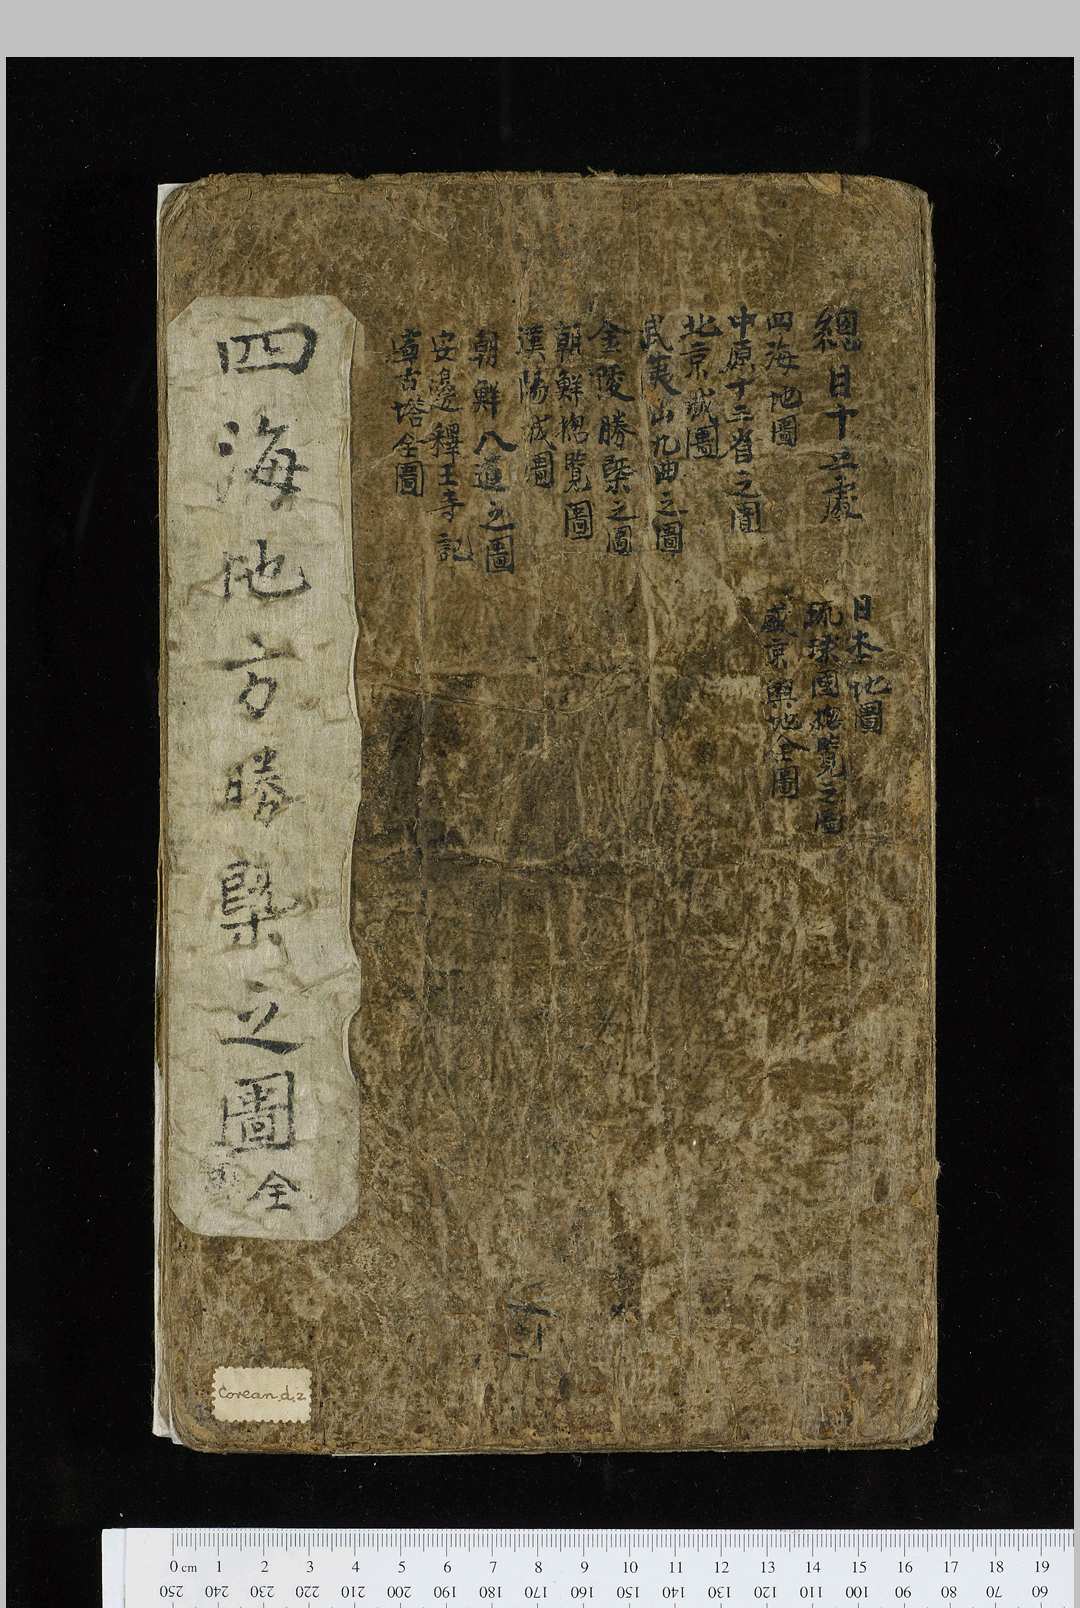 總目十三處
四海地圖
中原十三省之圖
北京城圖
武夷山九曲之圖
金陵勝槩之圖
朝鮮摠覽圖
漢陽城圖
朝鮮八道之圖
安邊釋王寺記
寧古塔全圖
日本地圖
琉球國摠覽之圖
盛京輿地全圖
四海地方勝槩之圖 全
Corean.d.2
0 cm 1 2 3 4 5 6 7 8 9 10 11 12 13 14 15 16 17 18 19
250 240 230 220 210 200 190 180 170 160 150 140 130 120 110 100 90 80 70 60